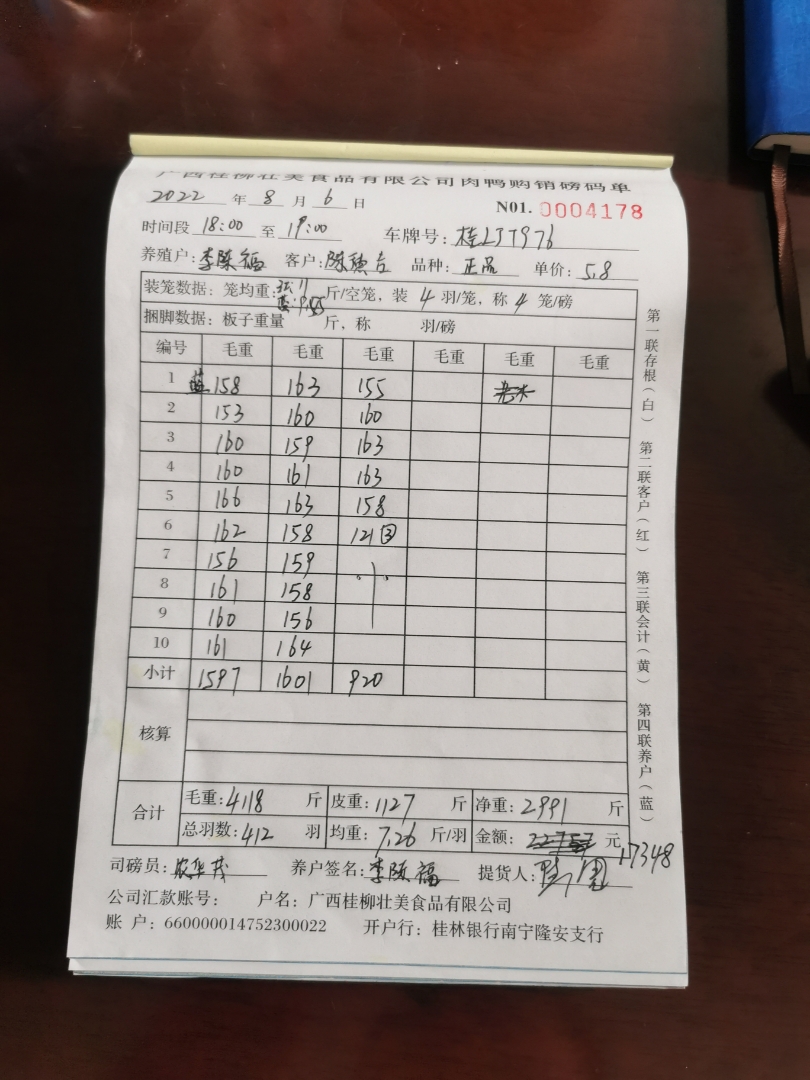 广西桂柳壮美食品有限公司肉鸭购销磅码单
2022 年 8 月 6 日 N01. 0004178
时间段 18:00 至 19:00 车牌号:
养殖户: 客户: 品种: 正品 单价: 5.8
装笼数据: 笼均重: 斤/空笼, 装 4 羽/笼, 称 4 笼/磅
捆脚数据: 板子重量 斤, 称 羽/磅
编号 毛重 毛重 毛重 毛重 毛重 毛重
1 蓝 158 163 155
2 153 160 160
3 160 159 163
4 160 161 163
5 166 163 158
6 162 158 121③
7 156 159
8 161 158
9 160 156
10 161 164
小计 1597 1601 920
核算
合计 毛重: 4118 斤 皮重: 1127 斤 净重: 2991 斤
总羽数: 412 羽 均重: 7.26 斤/羽 金额: 元 17348
司磅员: 养户签名: 提货人:
公司汇款账号: 户名: 广西桂柳壮美食品有限公司
账 户: 660000014752300022 开户行: 桂林银行南宁隆安支行
第一联存根(白) 第二联客户(红) 第三联会计(黄) 第四联养户(蓝)